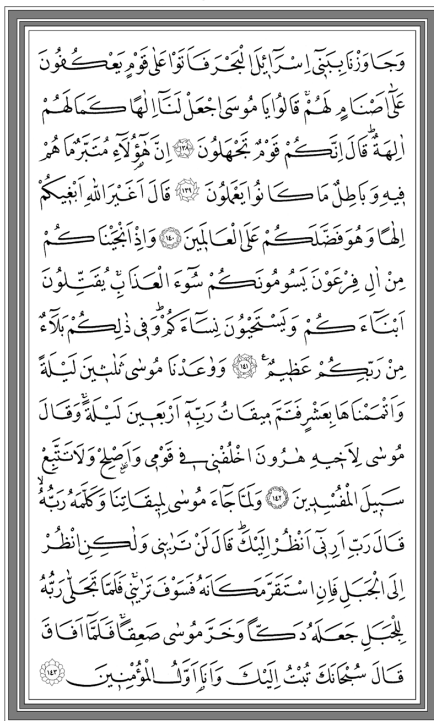 وَجَاوَزْنَا بِبَنٖٓي اِسْرَٓائٖلَ الْبَحْرَ فَاَتَوْا عَلٰى قَوْمٍ يَعْكُفُونَ
عَلٰٓى اَصْنَامٍ لَهُمْۚ قَالُوا يَا مُوسَى اجْعَلْ لَنَٓا اِلٰهًا كَمَا لَهُمْ
اٰلِهَةٌؕ قَالَ اِنَّكُمْ قَوْمٌ تَجْهَلُونَ ﴿١٣٨﴾ اِنَّ هٰٓؤُ۬لَٓاءِ مُتَبَّرٌ مَا هُمْ
فٖيهِ وَبَاطِلٌ مَا كَانُوا يَعْمَلُونَ ﴿١٣٩﴾ قَالَ اَغَيْرَ اللّٰهِ اَبْغٖيكُمْ
اِلٰهًا وَهُوَ فَضَّلَكُمْ عَلَى الْعَالَمٖينَ ﴿١٤٠﴾ وَاِذْ اَنْجَيْنَاكُمْ
مِنْ اٰلِ فِرْعَوْنَ يَسُومُونَكُمْ سُٓوءَ الْعَذَابِۚ يُقَتِّلُونَ
اَبْنَٓاءَكُمْ وَيَسْتَحْيُونَ نِسَٓاءَكُمْؕ وَفٖي ذٰلِكُمْ بَلَٓاءٌ
مِنْ رَبِّكُمْ عَظٖيمٌ ﴿١٤١﴾ وَوٰعَدْنَا مُوسٰى ثَلٰثٖينَ لَيْلَةً
وَاَتْمَمْنَاهَا بِعَشْرٍ فَتَمَّ مٖيقَاتُ رَبِّهٖٓ اَرْبَعٖينَ لَيْلَةًۚ وَقَالَ
مُوسٰى لِاَخٖيهِ هٰرُونَ اخْلُفْنٖي فٖي قَوْمٖي وَاَصْلِحْ وَلَا تَتَّبِعْ
سَبٖيلَ الْمُفْسِدٖينَ ﴿١٤٢﴾ وَلَمَّا جَٓاءَ مُوسٰى لِمٖيقَاتِنَا وَكَلَّمَهُ رَبُّهُۙ
قَالَ رَبِّ اَرِنٖٓي اَنْظُرْ اِلَيْكَؕ قَالَ لَنْ تَرٰينٖي وَلٰكِنِ انْظُرْ
اِلَى الْجَبَلِ فَاِنِ اسْتَقَرَّ مَكَانَهُ فَسَوْفَ تَرٰينٖيۚ فَلَمَّا تَجَلّٰى رَبُّهُ
لِلْجَبَلِ جَعَلَهُ دَكًّا وَخَرَّ مُوسٰى صَعِقًاۚ فَلَمَّٓا اَفَاقَ
قَالَ سُبْحَانَكَ تُبْتُ اِلَيْكَ وَاَنَا اَوَّلُ الْمُؤْمِنٖينَ ﴿١٤٣﴾